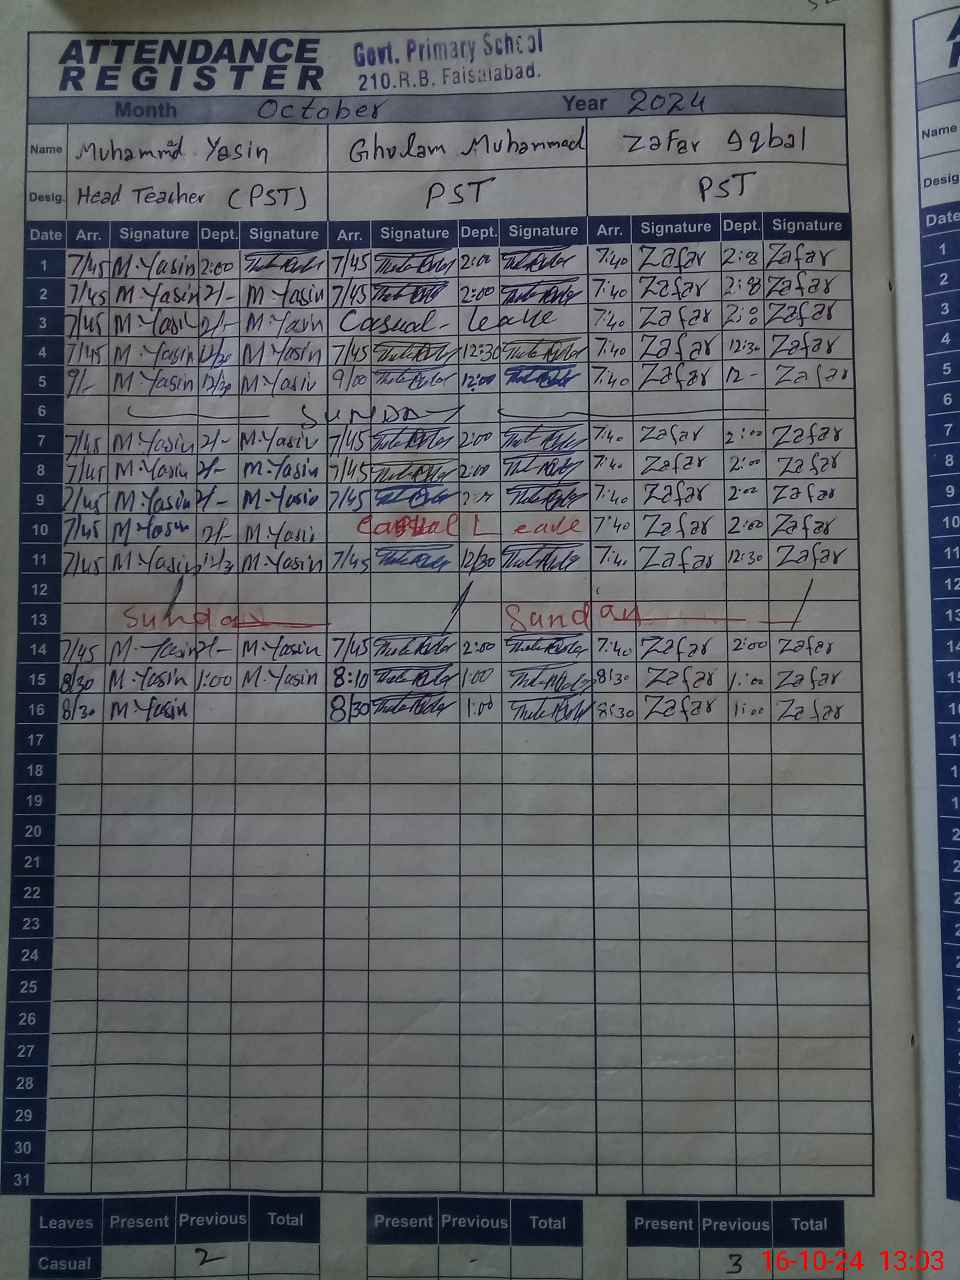 ATTENDANCE REGISTER
Govt. Primary School
210.R.B. Faisalabad.
Month October Year 2024
Name Muhammad Yasin Ghulam Muhammad Zafar Iqbal
Desig. Head Teacher (PST) PST PST
Date Arr. Signature Dept. Signature Arr. Signature Dept. Signature Arr. Signature Dept. Signature
1 7/45 M.Yasin 2:00 7/45 2:00 7:40 Zafar 2:8 Zafar
2 7/45 M.Yasin 2/- M.Yasin 7/45 2:00 7:40 Zafar 2:8 Zafar
3 7/45 M.Yasin 2/- M.Yasin Casual - Leave 7:40 Zafar 2:8 Zafar
4 7/45 M.Yasin 12/30 M.Yasin 7/45 12:30 7:40 Zafar 12:30 Zafar
5 9/- M.Yasin 12/30 M.Yasin 9/00 12:00 7:40 Zafar 12 - Zafar
6 SUNDAY
7 7/45 M.Yasin 2/- M.Yasin 7/45 2:00 7:40 Zafar 2:00 Zafar
8 7/45 M.Yasin 2/- M.Yasin 7/45 2:00 7:40 Zafar 2:00 Zafar
9 7/45 M.Yasin 2/- M.Yasin 7/45 2:00 7:40 Zafar 2:00 Zafar
10 7/45 M.Yasin 2/- M.Yasin Casual Leave 7:40 Zafar 2:00 Zafar
11 7/45 M.Yasin 12/30 M.Yasin 7/45 12/30 7:40 Zafar 12:30 Zafar
12
13 Sunday Sunday
14 7/45 M.Yasin 2/- M.Yasin 7/45 2:00 7:40 Zafar 2:00 Zafar
15 8/30 M.Yasin 1:00 M.Yasin 8:10 1:00 8:30 Zafar 1:00 Zafar
16 8/30 M.Yasin 8/30 1:00 8:30 Zafar 1:00 Zafar
17
18
19
20
21
22
23
24
25
26
27
28
29
30
31
Leaves Present Previous Total Present Previous Total Present Previous Total
Casual 2 - 3
16-10-24 13:03